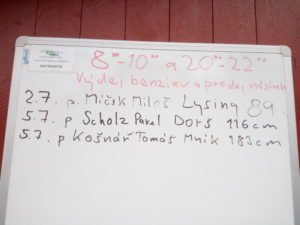 8⁰⁰-10⁰⁰ a 20⁰⁰-22⁰⁰
Výdej benzinu a prodej nástrah
2.7. p. Mičák Miloš Lysina 89
5.7. p Scholz Pavel Dors 116cm
5.7. p Košnář Tomáš Mník 183cm